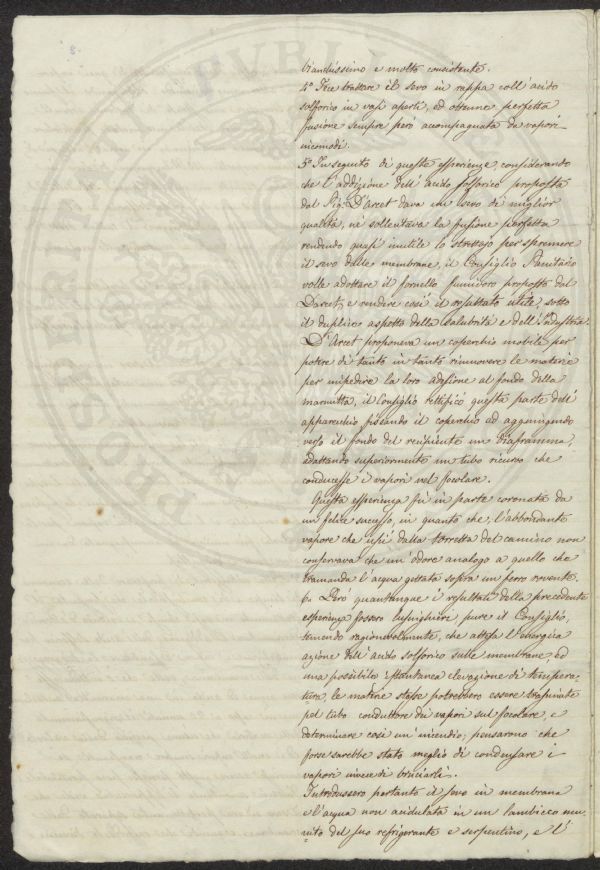 bianchissimo e molto consistente.
4º Fece trattare il sevo in rappa coll' acido
solforico in vasi aperti, ed ottenne perfetta
fusione sempre però accompagnata da vapori
incomodi.
5º In seguito di queste esperienze, considerando
che l'addizione dell' acido solforico proposta
dal Sig: D'Arcet dava un sevo di miglior
qualità, nè sollecitava la fusione perfetta
rendendo quasi inutile lo strettojo per spremere
il sevo dalle membrane, il Consiglio Sanitario
volle adottare il fornello fumivoro proposto dal
Darcet, e rendere così il resultato utile, sotto
il duplice aspetto della salubrità e dell' Industria.
D'Arcet proponeva un coperchio mobile per
potere di tanto in tanto rimuovere le materie
per impedire la loro adesione al fondo della
marmitta, il Consiglio rettificò questa parte dell'
apparecchio fissando il coperchio ed aggiungendo
verso il fondo del recipiente un diaframma,
adattando superiormente un tubo ricurvo che
conducesse i vapori nel focolare.
Questa esperienza fù in parte coronata da
un felice successo, in quanto che, l'abbondante
vapore che uscì dalla torretta del camino non
conservava che un'odore analogo a quello che
tramanda l'acqua gettata sopra un ferro rovente.
6. Però quantunque i resultati della precedente
esperienza fossero lusinghieri, pure il Consiglio,
temendo ragionevolmente, che attesa l'energica
azione dell' acido solforico sulle membrane, ed
una possibile istantanea elevazione di tempera-
tura, le materie stesse potrebbero essere trascinate
pel tubo conduttore dei vapori sul focolare, e
determinare così un' incendio; pensarono che
forse sarebbe stato meglio di condensare i
vapori invece di bruciarli.
Introdussero pertanto il sevo in membrana
e l'acqua non acidulata in un lambicco mu-
nito del suo refrigerante e serpentino, e l'